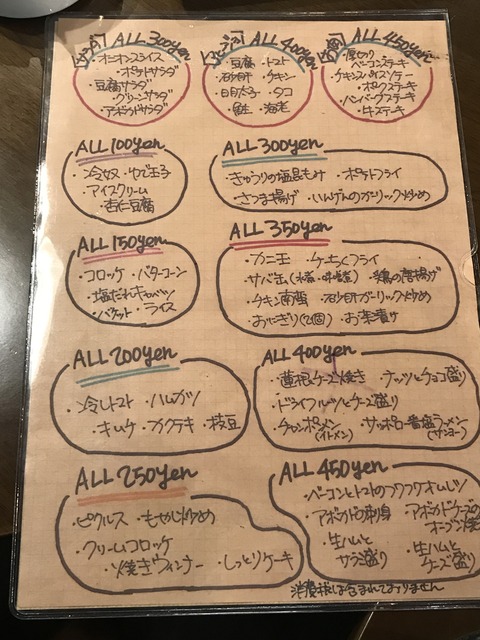 サラダ ALL 300yen
・オニオンスライス
・ポテトサラダ
・豆腐サラダ
・グリーンサラダ
・アボカドサラダ
ALL 400yen
・豆腐 ・トマト
・砂肝 ・チキン
・明太子 ・タコ
・鮭 ・海老
ALL 450yen
・厚切りベーコンステーキ
・ポークステーキ
・ハンバーグステーキ
・牛ステーキ
ALL 100yen
・冷奴 ・ゆで玉子
・アイスクリーム
・杏仁豆腐
ALL 300yen
・きゅうりの塩昆もみ ・ポテトフライ
・さつま揚げ ・いんげんのガーリック炒め
ALL 150yen
・コロッケ ・バターコーン
・塩だれキャベツ
・バケット ・ライス
ALL 350yen
・カニ玉 ・ケーちくフライ
・サバ缶(水煮・味噌煮) ・鶏の唐揚げ
・チキン南蛮 ・砂肝ガーリック炒め
・おにぎり(2個) ・お茶漬け
ALL 200yen
・冷しトマト ・ハムカツ
・キムチ ・カクテキ ・枝豆
ALL 400yen
・蓮根チーズ焼き ・ナッツとチョコ盛り
・ドライフルーツとチーズ盛り
・チャンポンメン(イトメン) ・サッポロ一番塩ラーメン(サンヨー)
ALL 250yen
・ピクルス ・もやし炒め
・クリームコロッケ
・焼きウィンナー ・しっとりケーキ
ALL 450yen
・ベーコンとトマトのフワフワオムレツ
・アボカドの刺身 ・アボカドチーズのオーブン焼
・生ハムとサラミ盛り ・生ハムとチーズ盛り
消費税は含まれておりません